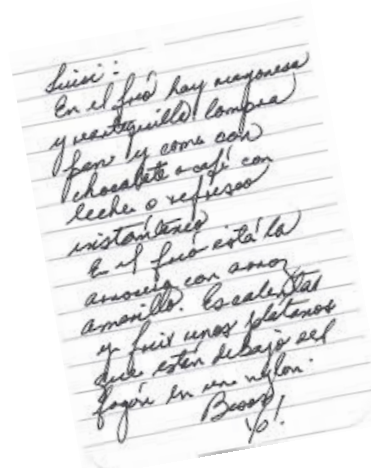 Luisi:
En el frío hay mayonesa
y mantequilla compra
pan y come con
chocolate o café con
leche o refresco
instantáneo
E el frío está la
con arroz
amarillo. Es calentar
y freir unos platanos
que están debajo del
fogón en un nylon.
Besos
Yo!